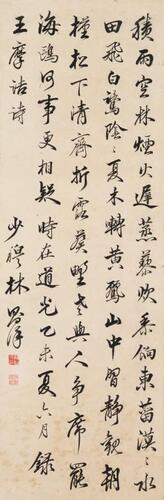 積雨空林煙火遲蒸藜炊黍餉東菑漠々水
田飛白鷺陰々夏木轉黃鸝山中習靜觀朝
槿松下清齋折露葵野老與人爭席罷
海鷗何事更相疑時在道光乙未夏六月錄
王摩詰詩
少穆林則徐